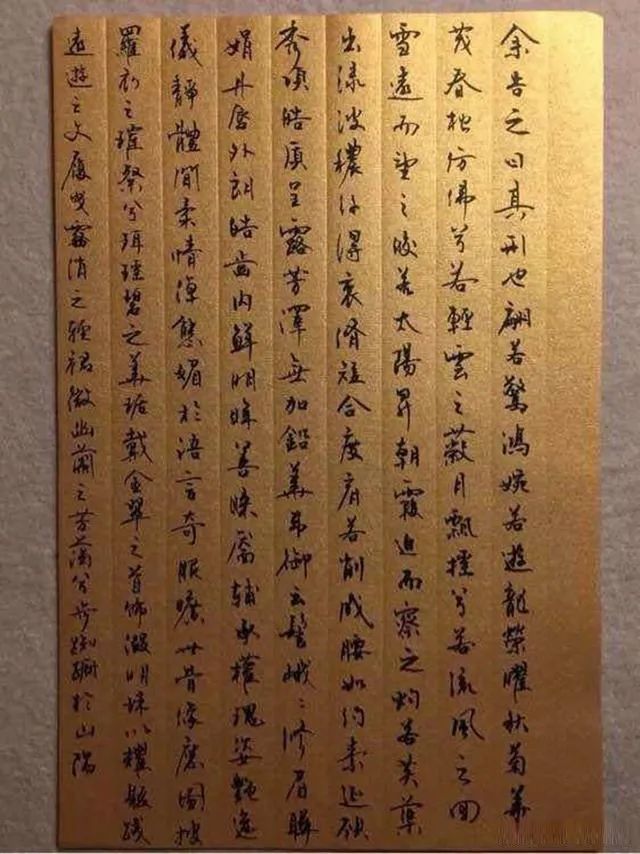 余告之曰其形也翩若驚鴻婉若遊龍榮曜秋菊華
茂春松仿佛兮若輕雲之蔽月飄搖兮若流風之回
雪遠而望之皎若太陽昇朝霞迫而察之灼若芙蕖
出淥波穠纖得衷脩短合度肩若削成腰如約素延頸
秀項皓質呈露芳澤無加鉛華弗御雲髻峨峨脩眉聯
娟丹唇外朗皓齒內鮮明眸善睞靨輔承權瑰姿艷逸
儀靜體閒柔情綽態媚於語言奇服曠世骨像應圖披
羅衣之璀粲兮珥瑤碧之華琚戴金翠之首飾綴明珠以耀軀踐
遠遊之文履曳霧綃之輕裾微幽蘭之芳藹兮步踟躕於山隅